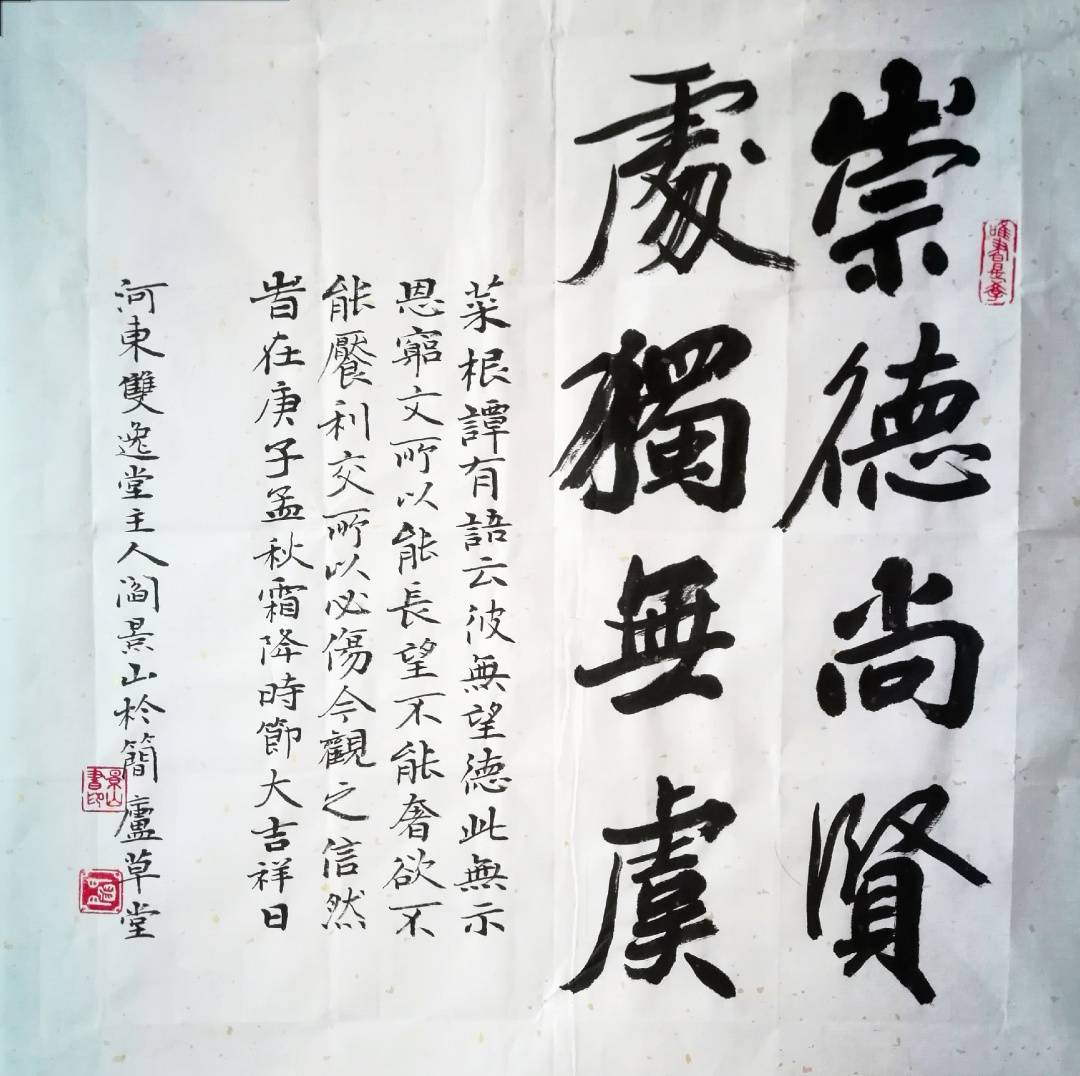 崇德尚賢
處獨無虞
菜根譚有語云彼無望德此無示
恩窮交所以能長望不能奢欲不
能饜利交所以必傷今觀之信然
旹在庚子孟秋霜降時節大吉祥日
河東雙逸堂主人閻景山於簡廬草堂
景山書印